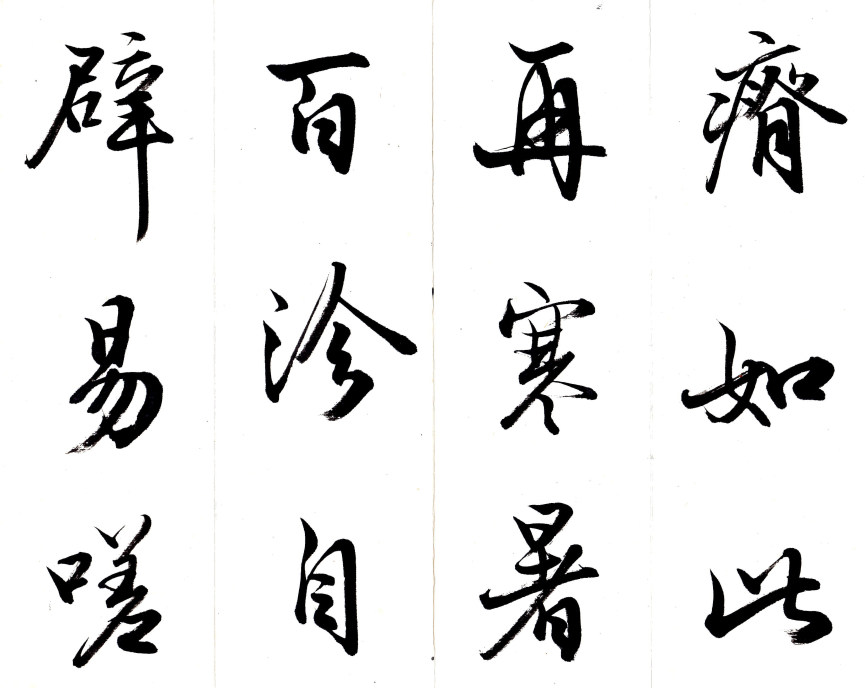 瘠如此
再寒暑
百沴自
辟易嗟